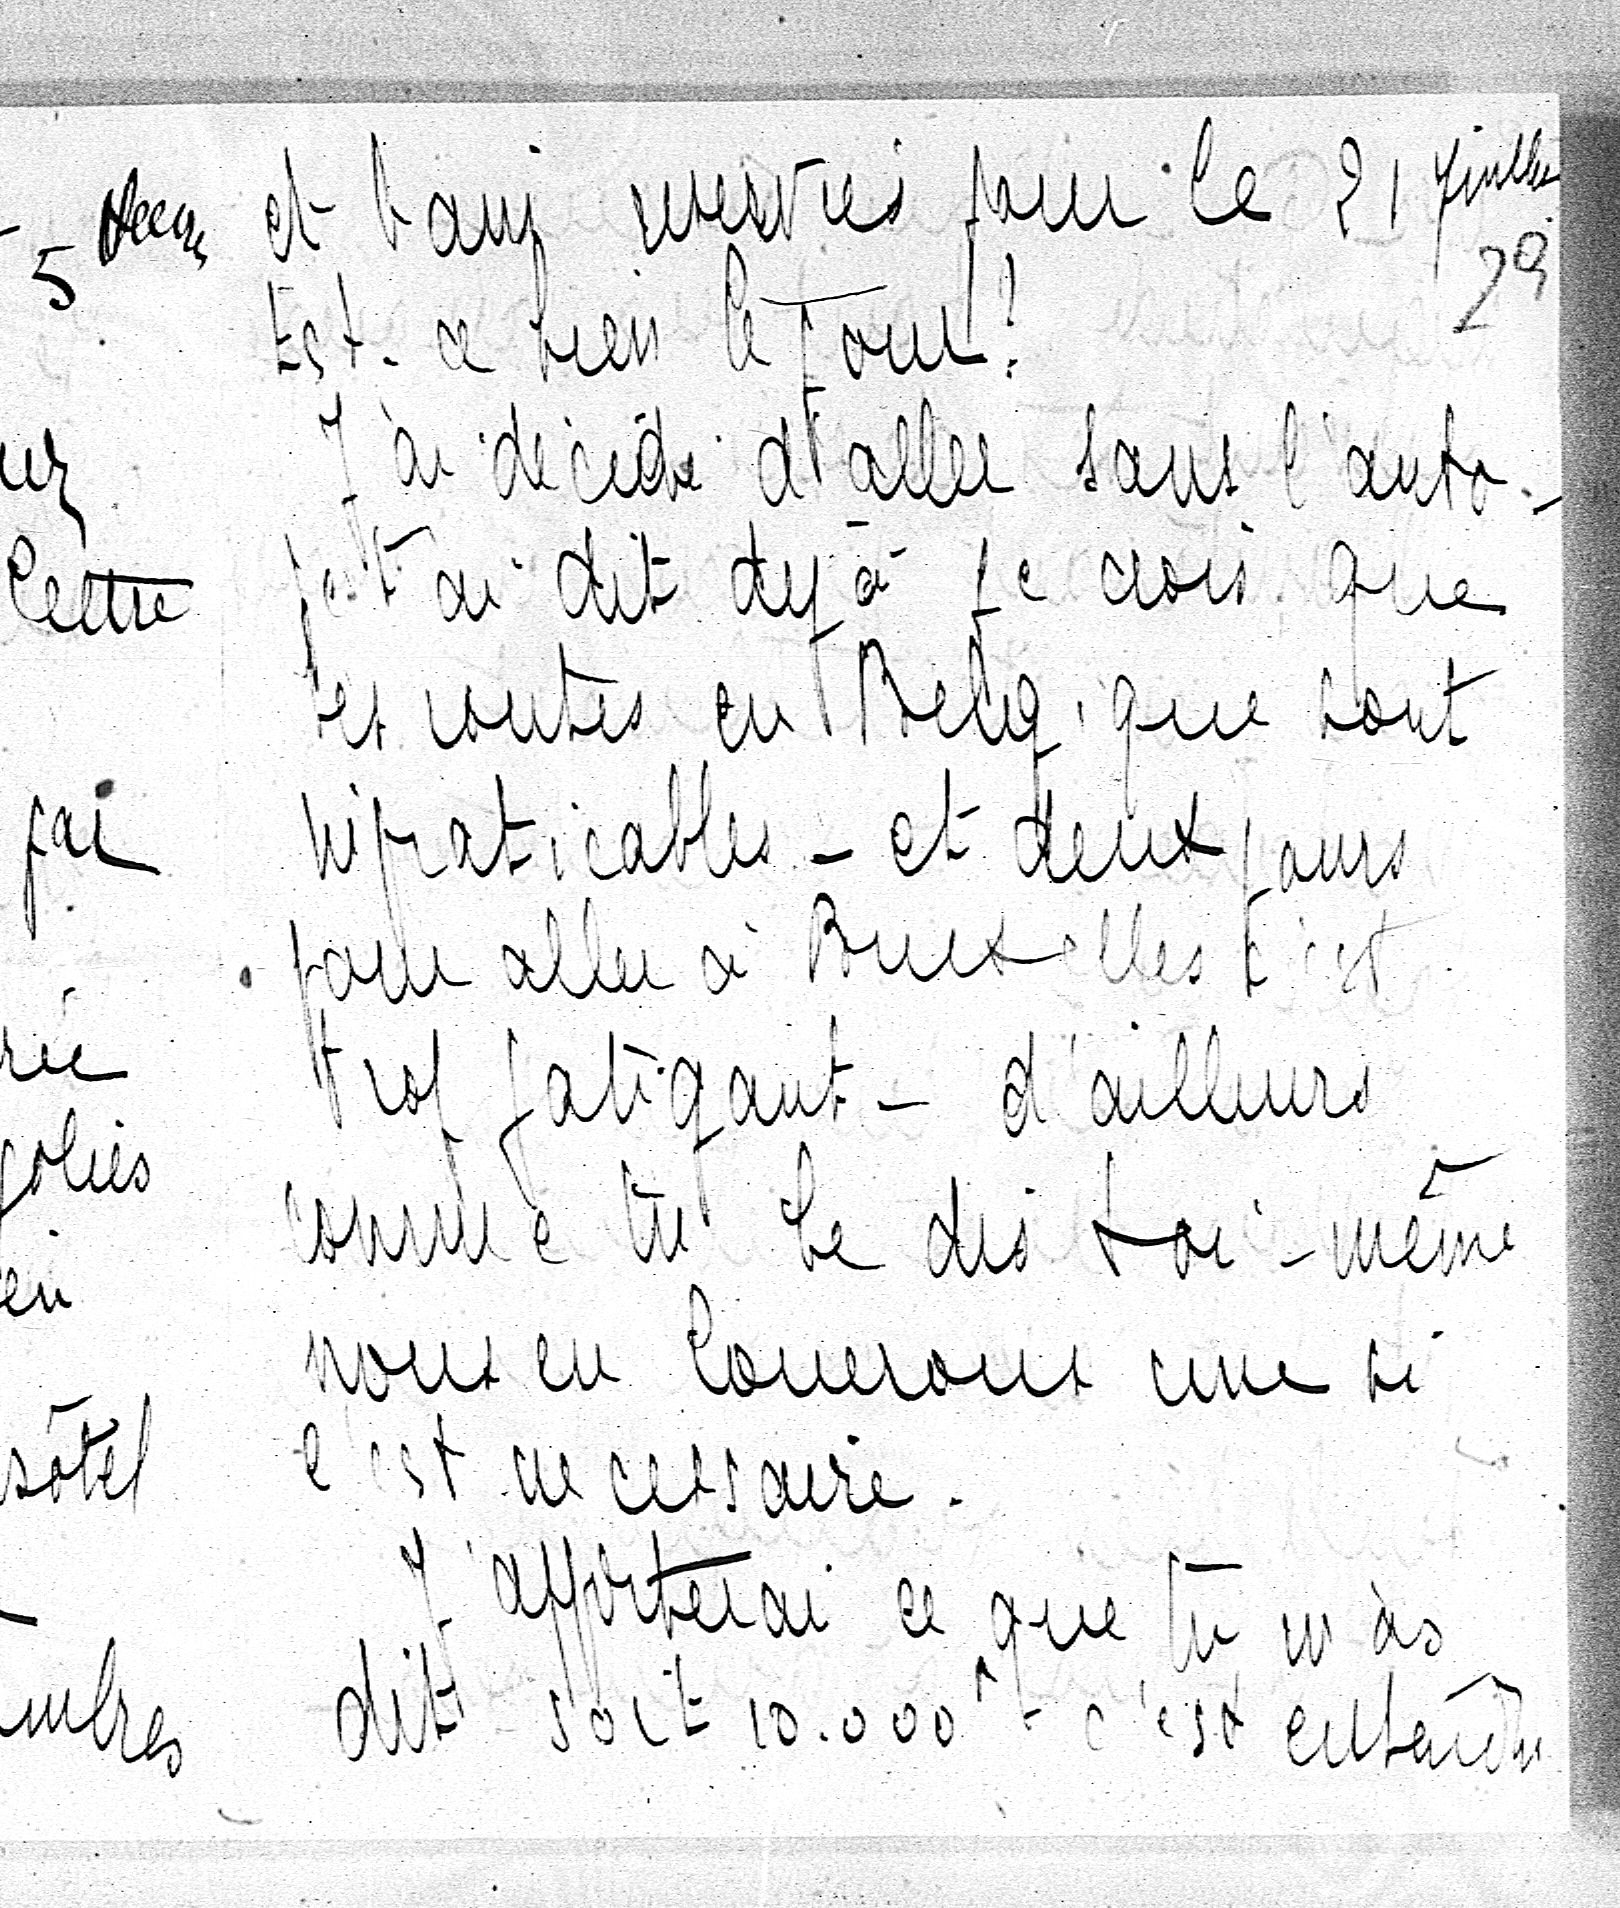 5 heures
ez
lettre
j'ai
rée
jolies
en
hôtel
ambres
et bains reservés pour le 21 Juillet
29
Est-ce bien le jour?
J'ai décidé d'aller sans l'auto -
je t'ai dit déjà je crois que
les routes en Belgique sont
impraticables - et deux jours
pour aller à Bruxelles c'est
trop fatigant - d'ailleurs
comme tu le dis toi-même
nous en louerons une si
c'est necessaire.
J'apporterai ce que tu m'as
dit soit 10.000f - c'est entendu